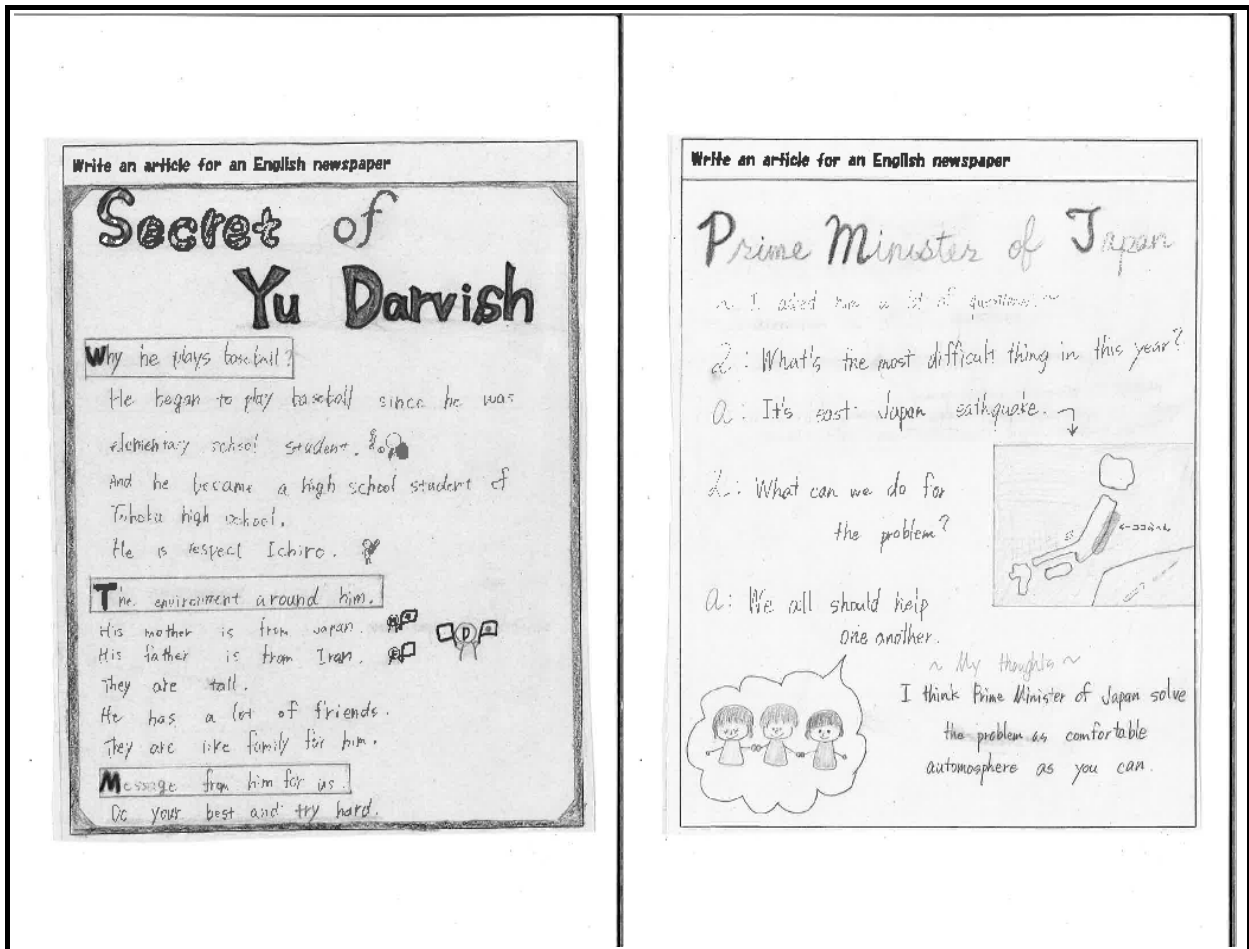 Write an article for an English newspaper
Secret of
Yu Darvish
Why he plays baseball?
He began to play baseball since he was
elementary school student.
And he became a high school student of
Tohoku high school.
He is respect Ichiro.
The environment around him.
His mother is from Japan.
His father is from Iran.
They are tall.
He has a lot of friends.
They are like family for him.
Message from him for us.
Do your best and try hard.
D
Write an article for an English newspaper
Prime Minister of Japan
~ I asked him a lot of questions. ~
Q: What's the most difficult thing in this year?
a: It's east Japan eathquake.
Q: What can we do for
the problem?
←ココらへん
a: We all should help
one another.
~ My thoughts ~
I think Prime Minister of Japan solve
the problem as comfortable
automosphere as you can.